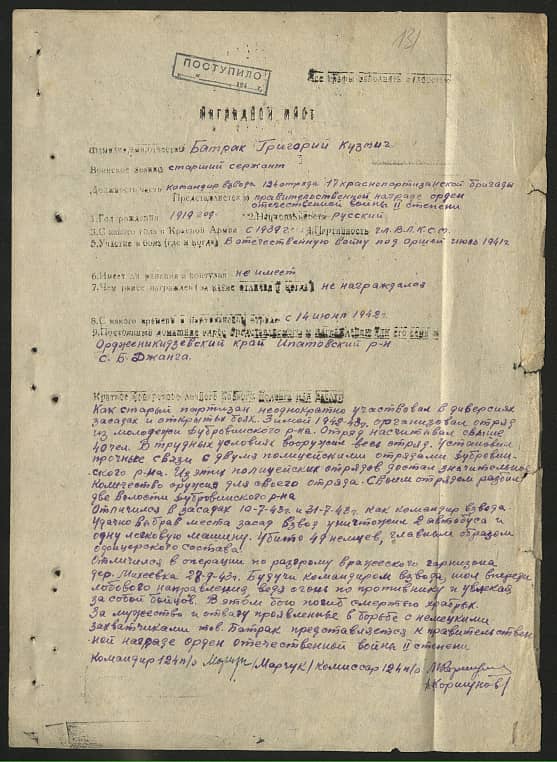 131
ПОСТУПИЛО
194 г.
Все графы заполнять полностью
НАГРАДНОЙ ЛИСТ
Фамилия, имя, отчество Батрак Григорий Кузмич
Воинское звание старший сержант
Должность, часть командир взвода 124 отряда 17 краснопартизанской бригады
Представляется к правительственной награде орден
отечественной войны II степени
1. Год рождения 1919 год. 2. Национальность русский
3. С какого года в Красной Армии с 1939 г. 4. Партийность чл. В.Л.К.С.М.
5. Участие в боях (где и когда) В отечественную войну под Оршей июль 1941 г.
6. Имеет ли ранения и контузии не имеет
7. Чем ранее награжден за какие отличия (когда) не награждался
8. С какого времени в партизанском отряде с 14 июня 1942 г.
9. Постоянный домашний адрес
Орджоникидзевский край Ипатовский р-н
с. Б-Джанга.
Краткое
Как старый партизан неоднократно участвовал в диверсиях
засадах и открытых боях. Зимой 1942-43г. организовал отряд
из молодежи Дубровинского р-на. Отряд насчитывал свыше
40 чел. В трудных условиях вооружил весь отряд. Установил
прочные связи с двумя полицейскими отрядами Дубровин-
ского р-на. Из этих полицейских отрядов достал значительное
количество оружия для своего отряда. С своим отрядом разбил
две волости Дубровинского р-на
Отличился в засадах 10-7-43г. и 31-7-43г. Как командир взвода
удачно выбрав места засад взвод уничтожил 2 автобуса и
одну легковую машину. Убито 49 немцев, главным образом
офицерского состава.
Отличился в операции по разгрому вражеского гарнизона
дер. Михеевка 28-9-43г. Будучи командиром взвода, шол впереди
лобового направления, ведя огонь по противнику и увлекая
за собой бойцов. В этом бою погиб смертью храбрых.
За мужество и отвагу проявленные в борьбе с немецкими
захватчиками тов. Батрак представляется к правительствен
ной награде орден отечественной войны II степени
Командир 124 п/о /Марчук/ Комиссар 124 п/о
/Коршунов/